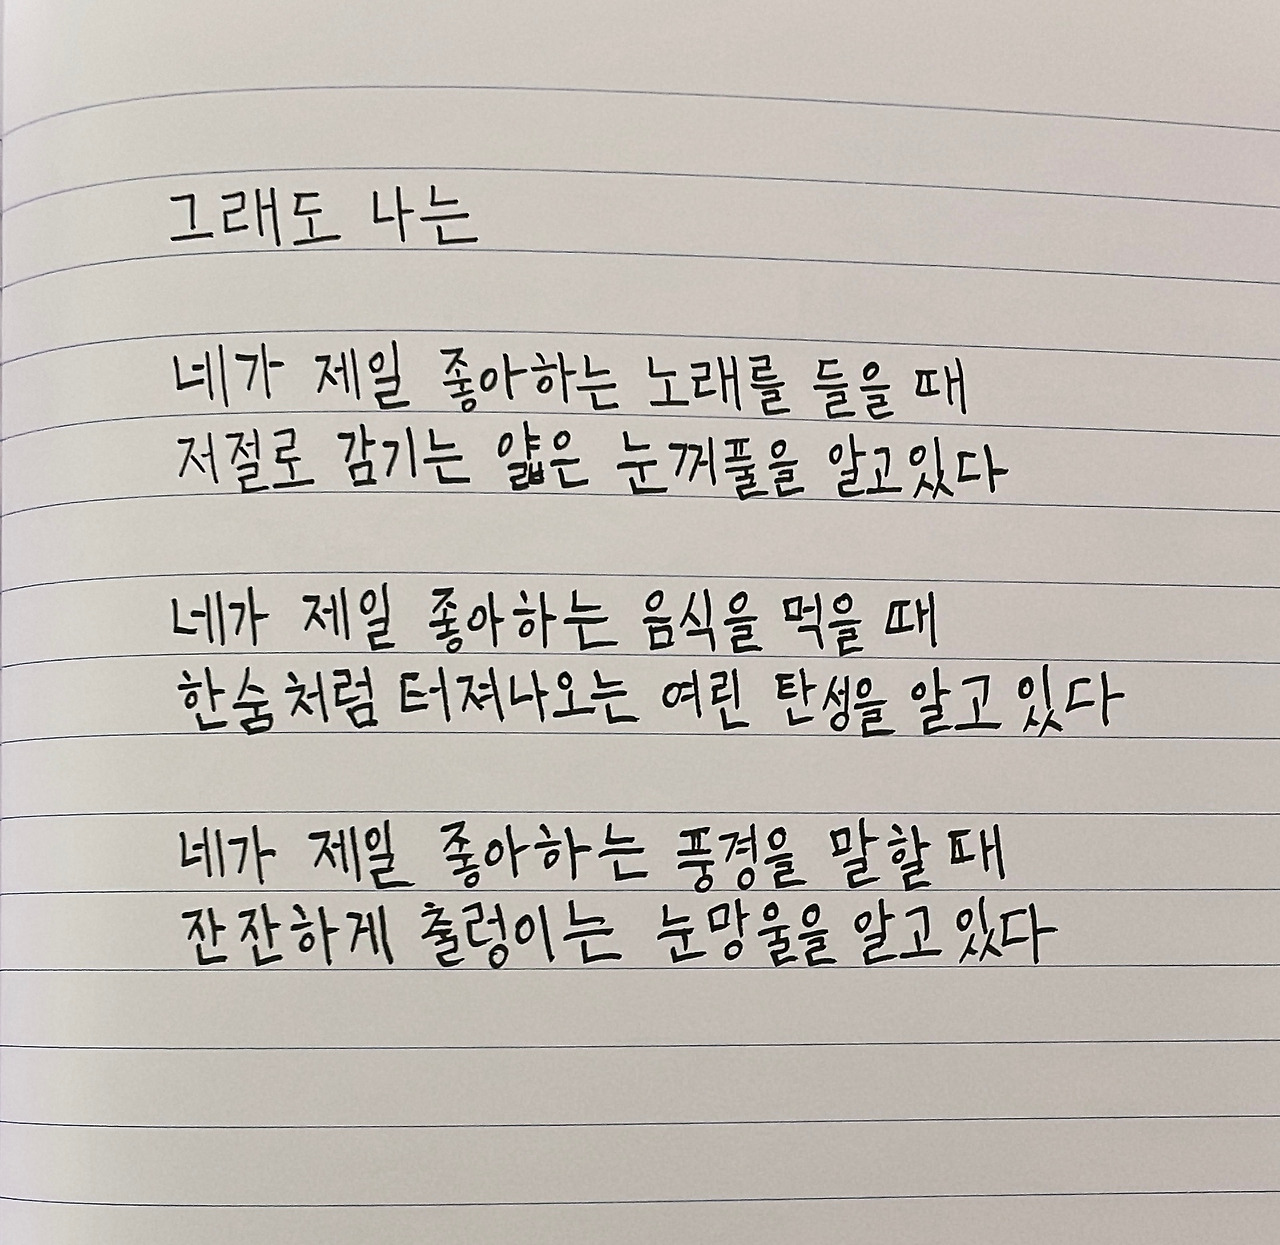 그래도 나는
네가 제일 좋아하는 노래를 들을 때
저절로 감기는 얇은 눈꺼풀을 알고있다
네가 제일 좋아하는 음식을 먹을 때
한숨처럼 터져나오는 여린 탄성을 알고 있다
네가 제일 좋아하는 풍경을 말할 때
잔잔하게 출렁이는 눈망울을 알고있다